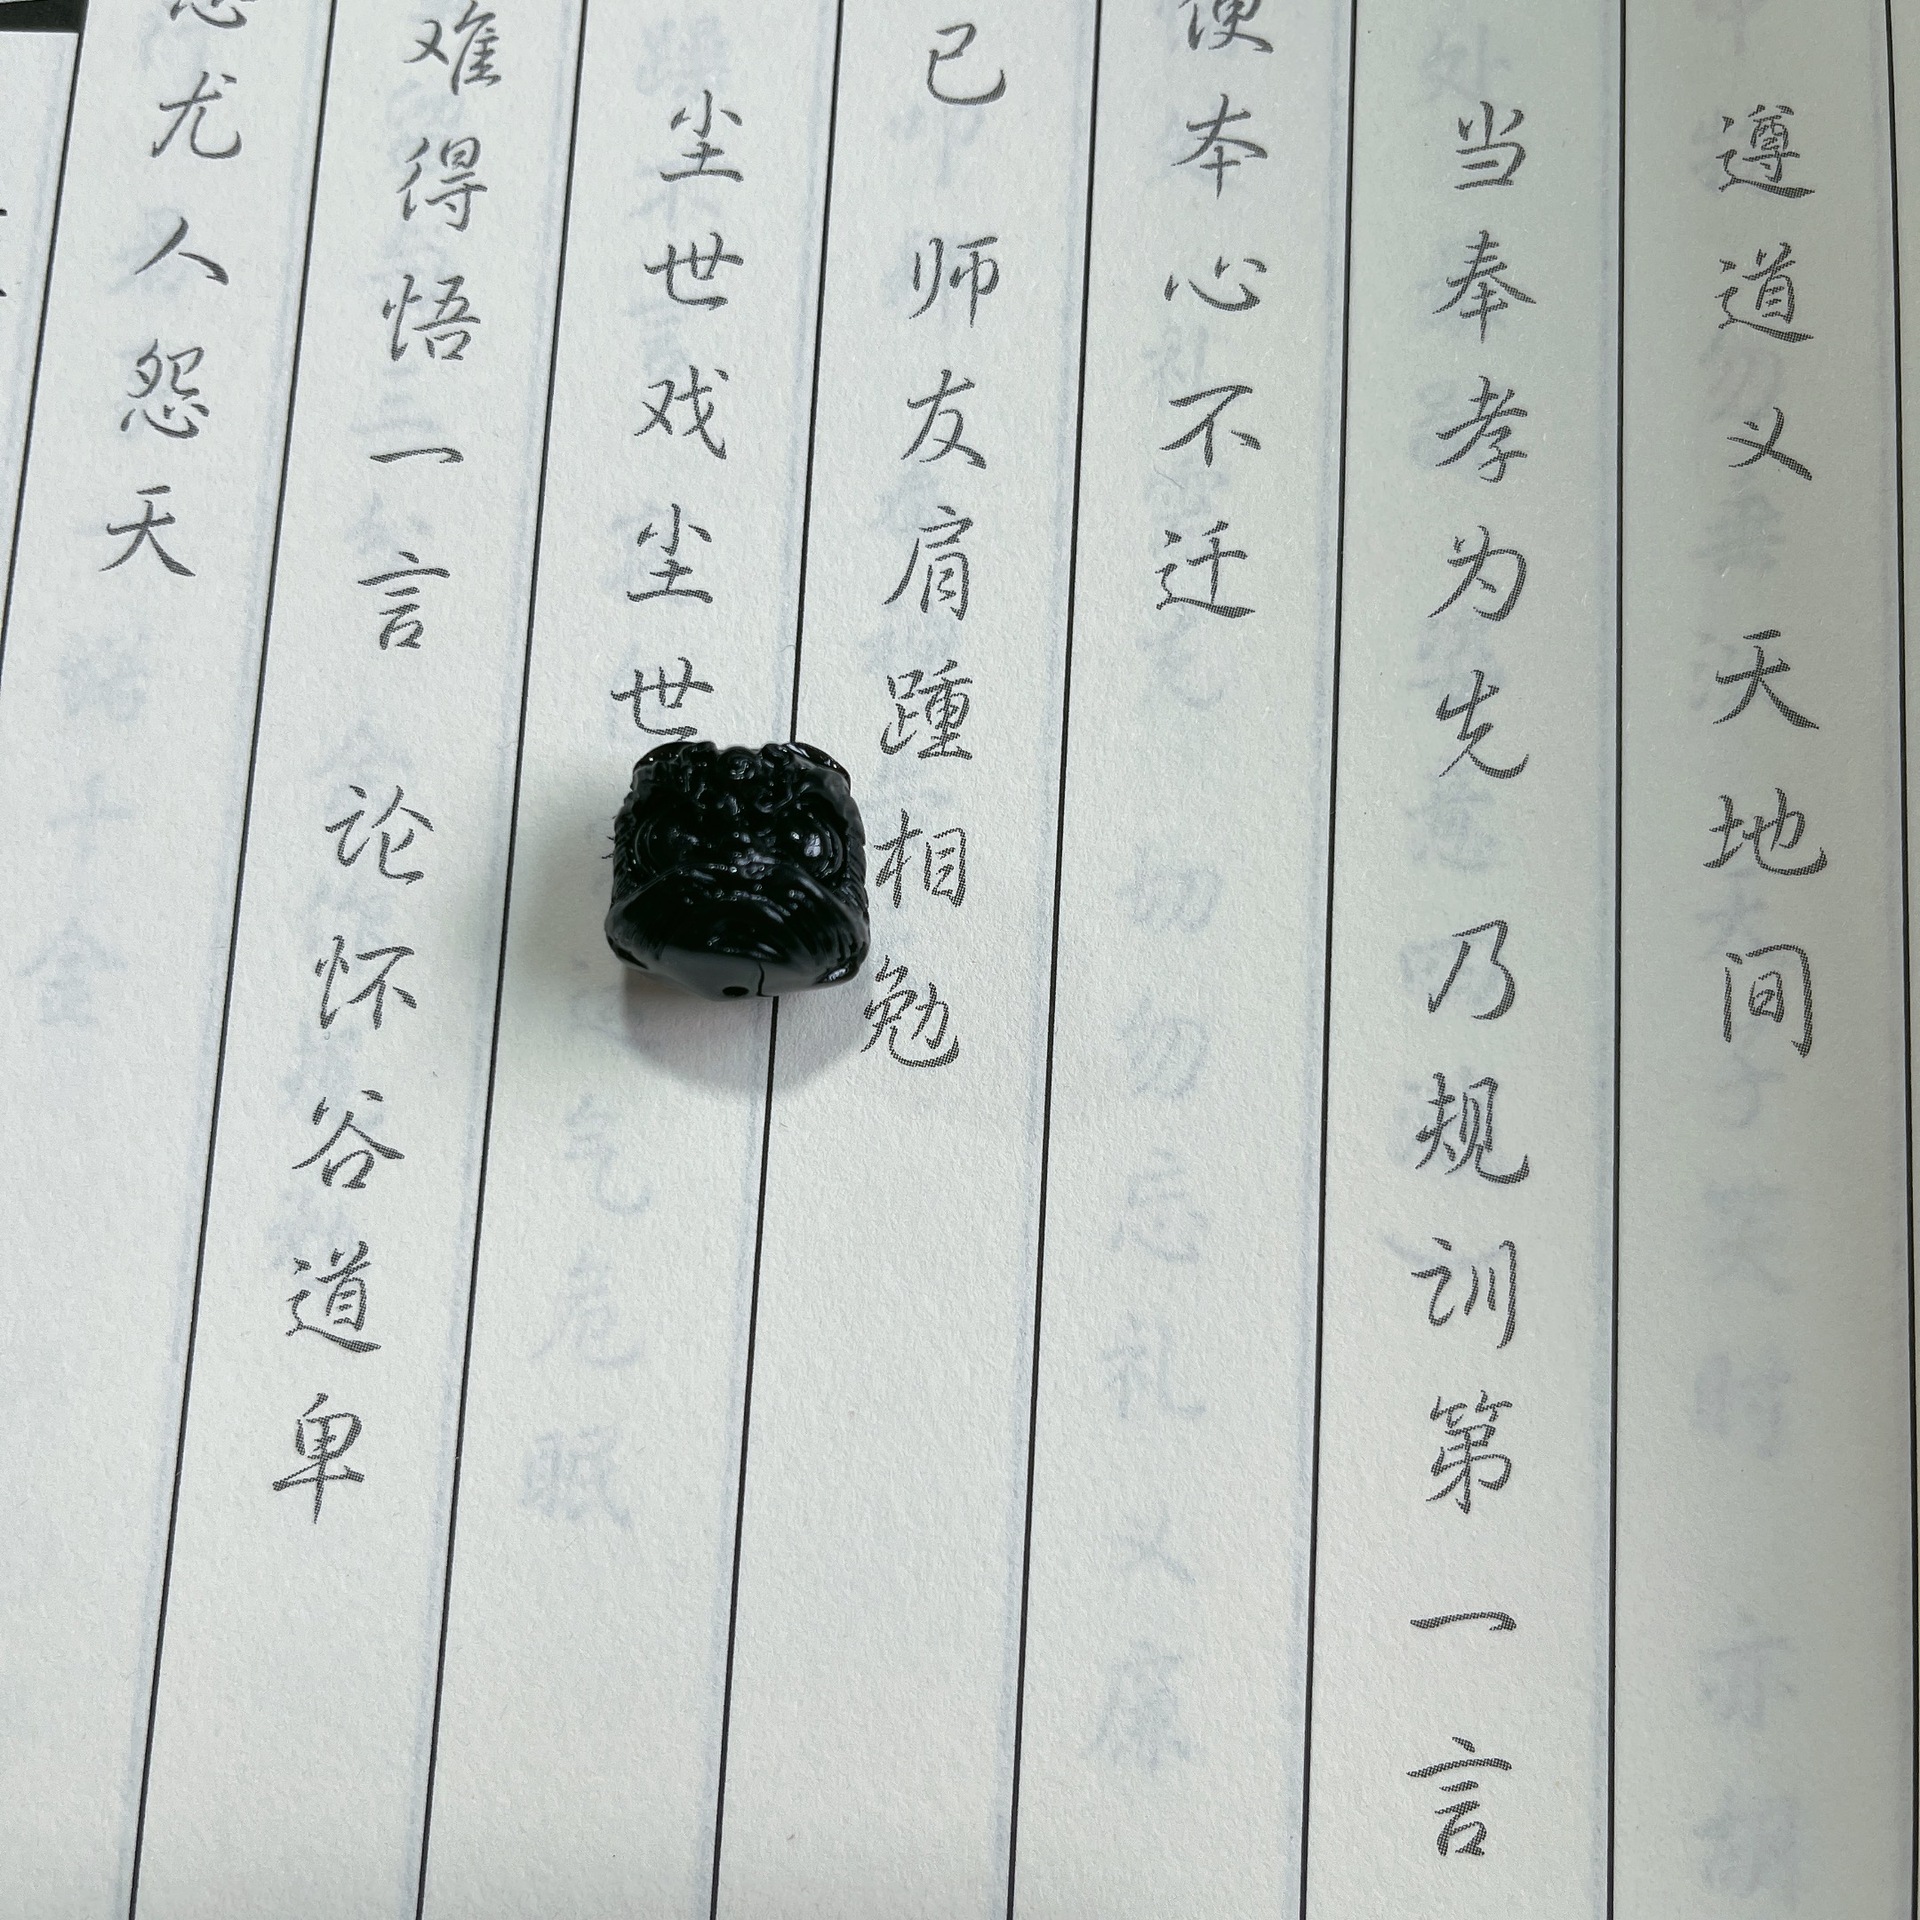 遵道义 天地间
当奉孝为先 乃规训第一言
便本心不迁
已 师友肩踵相勉
尘世戏尘世
难得悟一言 论怀谷道卑
尤人怨天